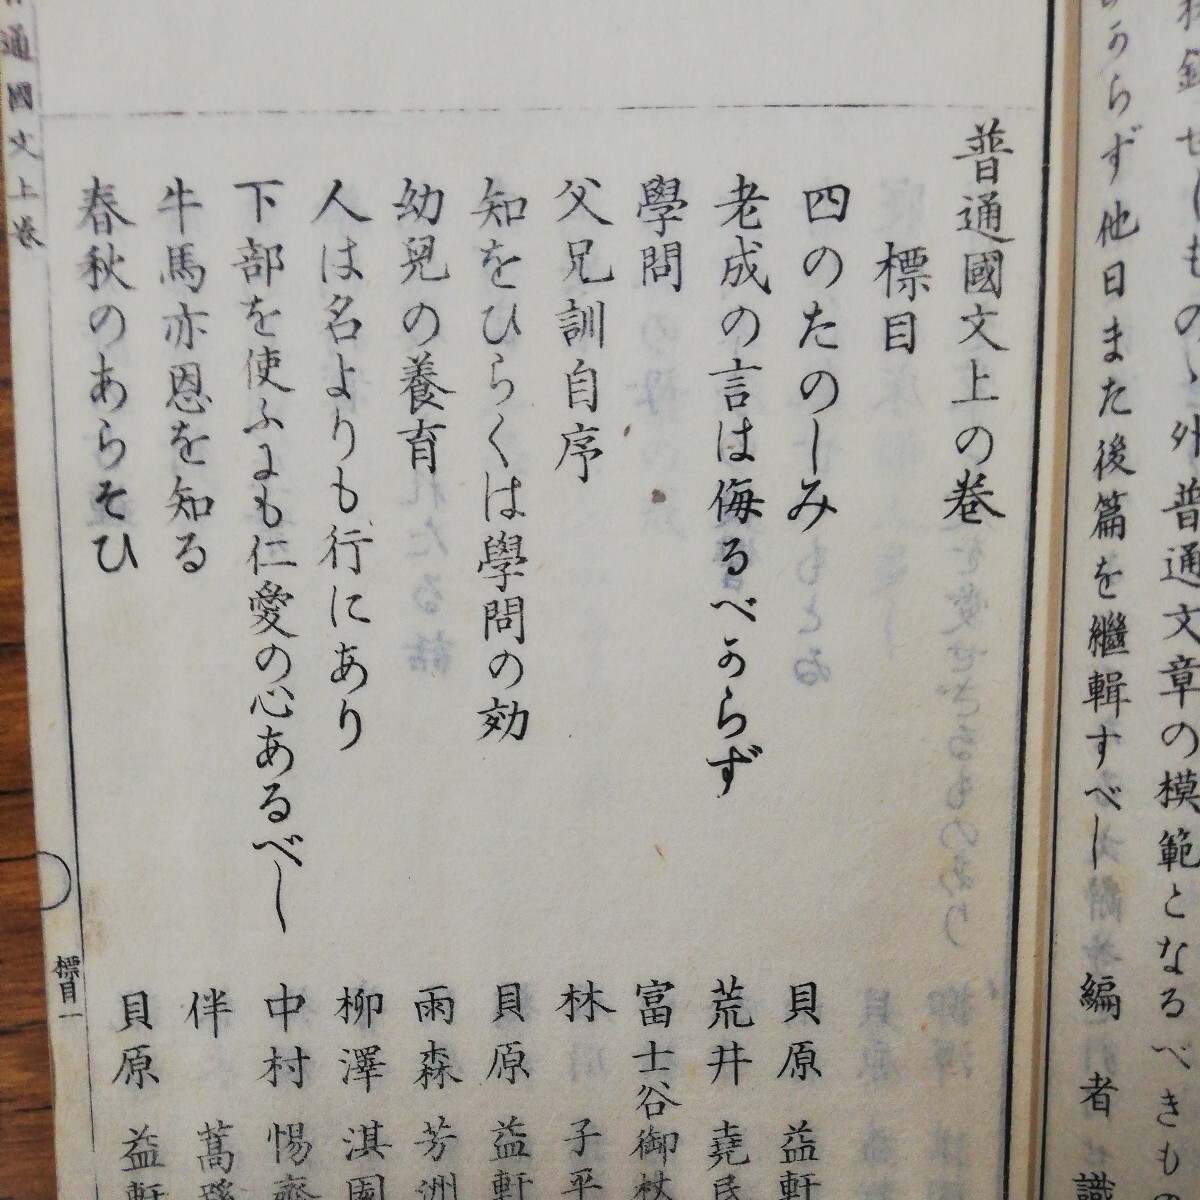 せしものゝ外普通文章の模範となるべきもの
らず他日また後篇を繼輯すべし 編者識
普通國文上の巻
標目
四のたのしみ 貝原益軒
老成の言は侮るべからず 荒井堯民
學問 富士谷御杖
父兄訓自序 林子平
知をひらくは學問の効 貝原益軒
幼兒の養育 雨森芳洲
人は名よりも行にあり 柳澤淇園
下部を使ふにも仁愛の心あるべし 中村惕齋
牛馬亦恩を知る 伴蒿蹊
春秋のあらそひ 貝原益軒
通國文上巻
標目一